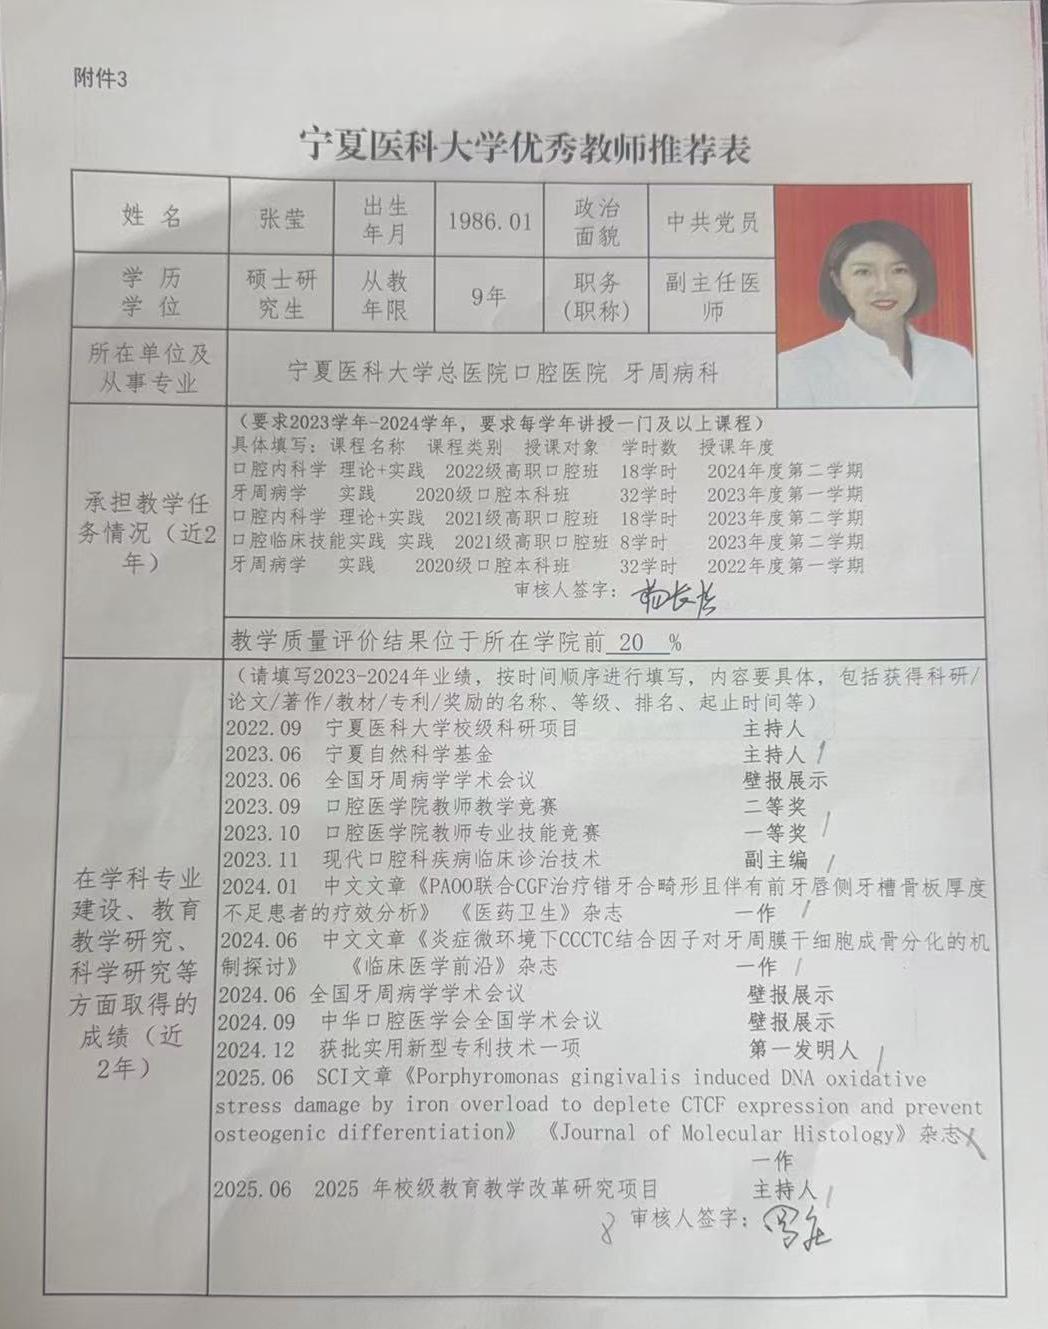 附件3
宁夏医科大学优秀教师推荐表
姓 名 张莹 出生年月 1986.01 政治面貌 中共党员
学 历 学 位 硕士研究生 从教年限 9年 职务(职称) 副主任医师
所在单位及从事专业 宁夏医科大学总医院口腔医院 牙周病科
承担教学任务情况（近2年）
（要求2023学年-2024学年，要求每学年讲授一门及以上课程）
具体填写：课程名称 课程类别 授课对象 学时数 授课年度
口腔内科学 理论+实践 2022级高职口腔班 18学时 2024年度第二学期
牙周病学 实践 2020级口腔本科班 32学时 2023年度第一学期
口腔内科学 理论+实践 2021级高职口腔班 18学时 2023年度第二学期
口腔临床技能实践 实践 2021级高职口腔班 8学时 2023年度第二学期
牙周病学 实践 2020级口腔本科班 32学时 2022年度第一学期
审核人签字：
教学质量评价结果位于所在学院前 20 %
在学科专业建设、教育教学研究、科学研究等方面取得的成绩（近2年）
（请填写2023-2024年业绩，按时间顺序进行填写，内容要具体，包括获得科研/
论文/著作/教材/专利/奖励的名称、等级、排名、起止时间等）
2022.09 宁夏医科大学校级科研项目 主持人
2023.06 宁夏自然科学基金 主持人
2023.06 全国牙周病学学术会议 壁报展示
2023.09 口腔医学院教师教学竞赛 二等奖
2023.10 口腔医学院教师专业技能竞赛 一等奖
2023.11 现代口腔科疾病临床诊治技术 副主编
2024.01 中文文章《PAOO联合CGF治疗错牙合畸形且伴有前牙唇侧牙槽骨板厚度
不足患者的疗效分析》 《医药卫生》杂志 一作
2024.06 中文文章《炎症微环境下CCCTC结合因子对牙周膜干细胞成骨分化的机
制探讨》 《临床医学前沿》杂志 一作
2024.06 全国牙周病学学术会议 壁报展示
2024.09 中华口腔医学会全国学术会议 壁报展示
2024.12 获批实用新型专利技术一项 第一发明人
2025.06 SCI文章《Porphyromonas gingivalis induced DNA oxidative
stress damage by iron overload to deplete CTCF expression and prevent
osteogenic differentiation》 《Journal of Molecular Histology》杂志
一作
2025.06 2025 年校级教育教学改革研究项目 主持人
8 审核人签字：